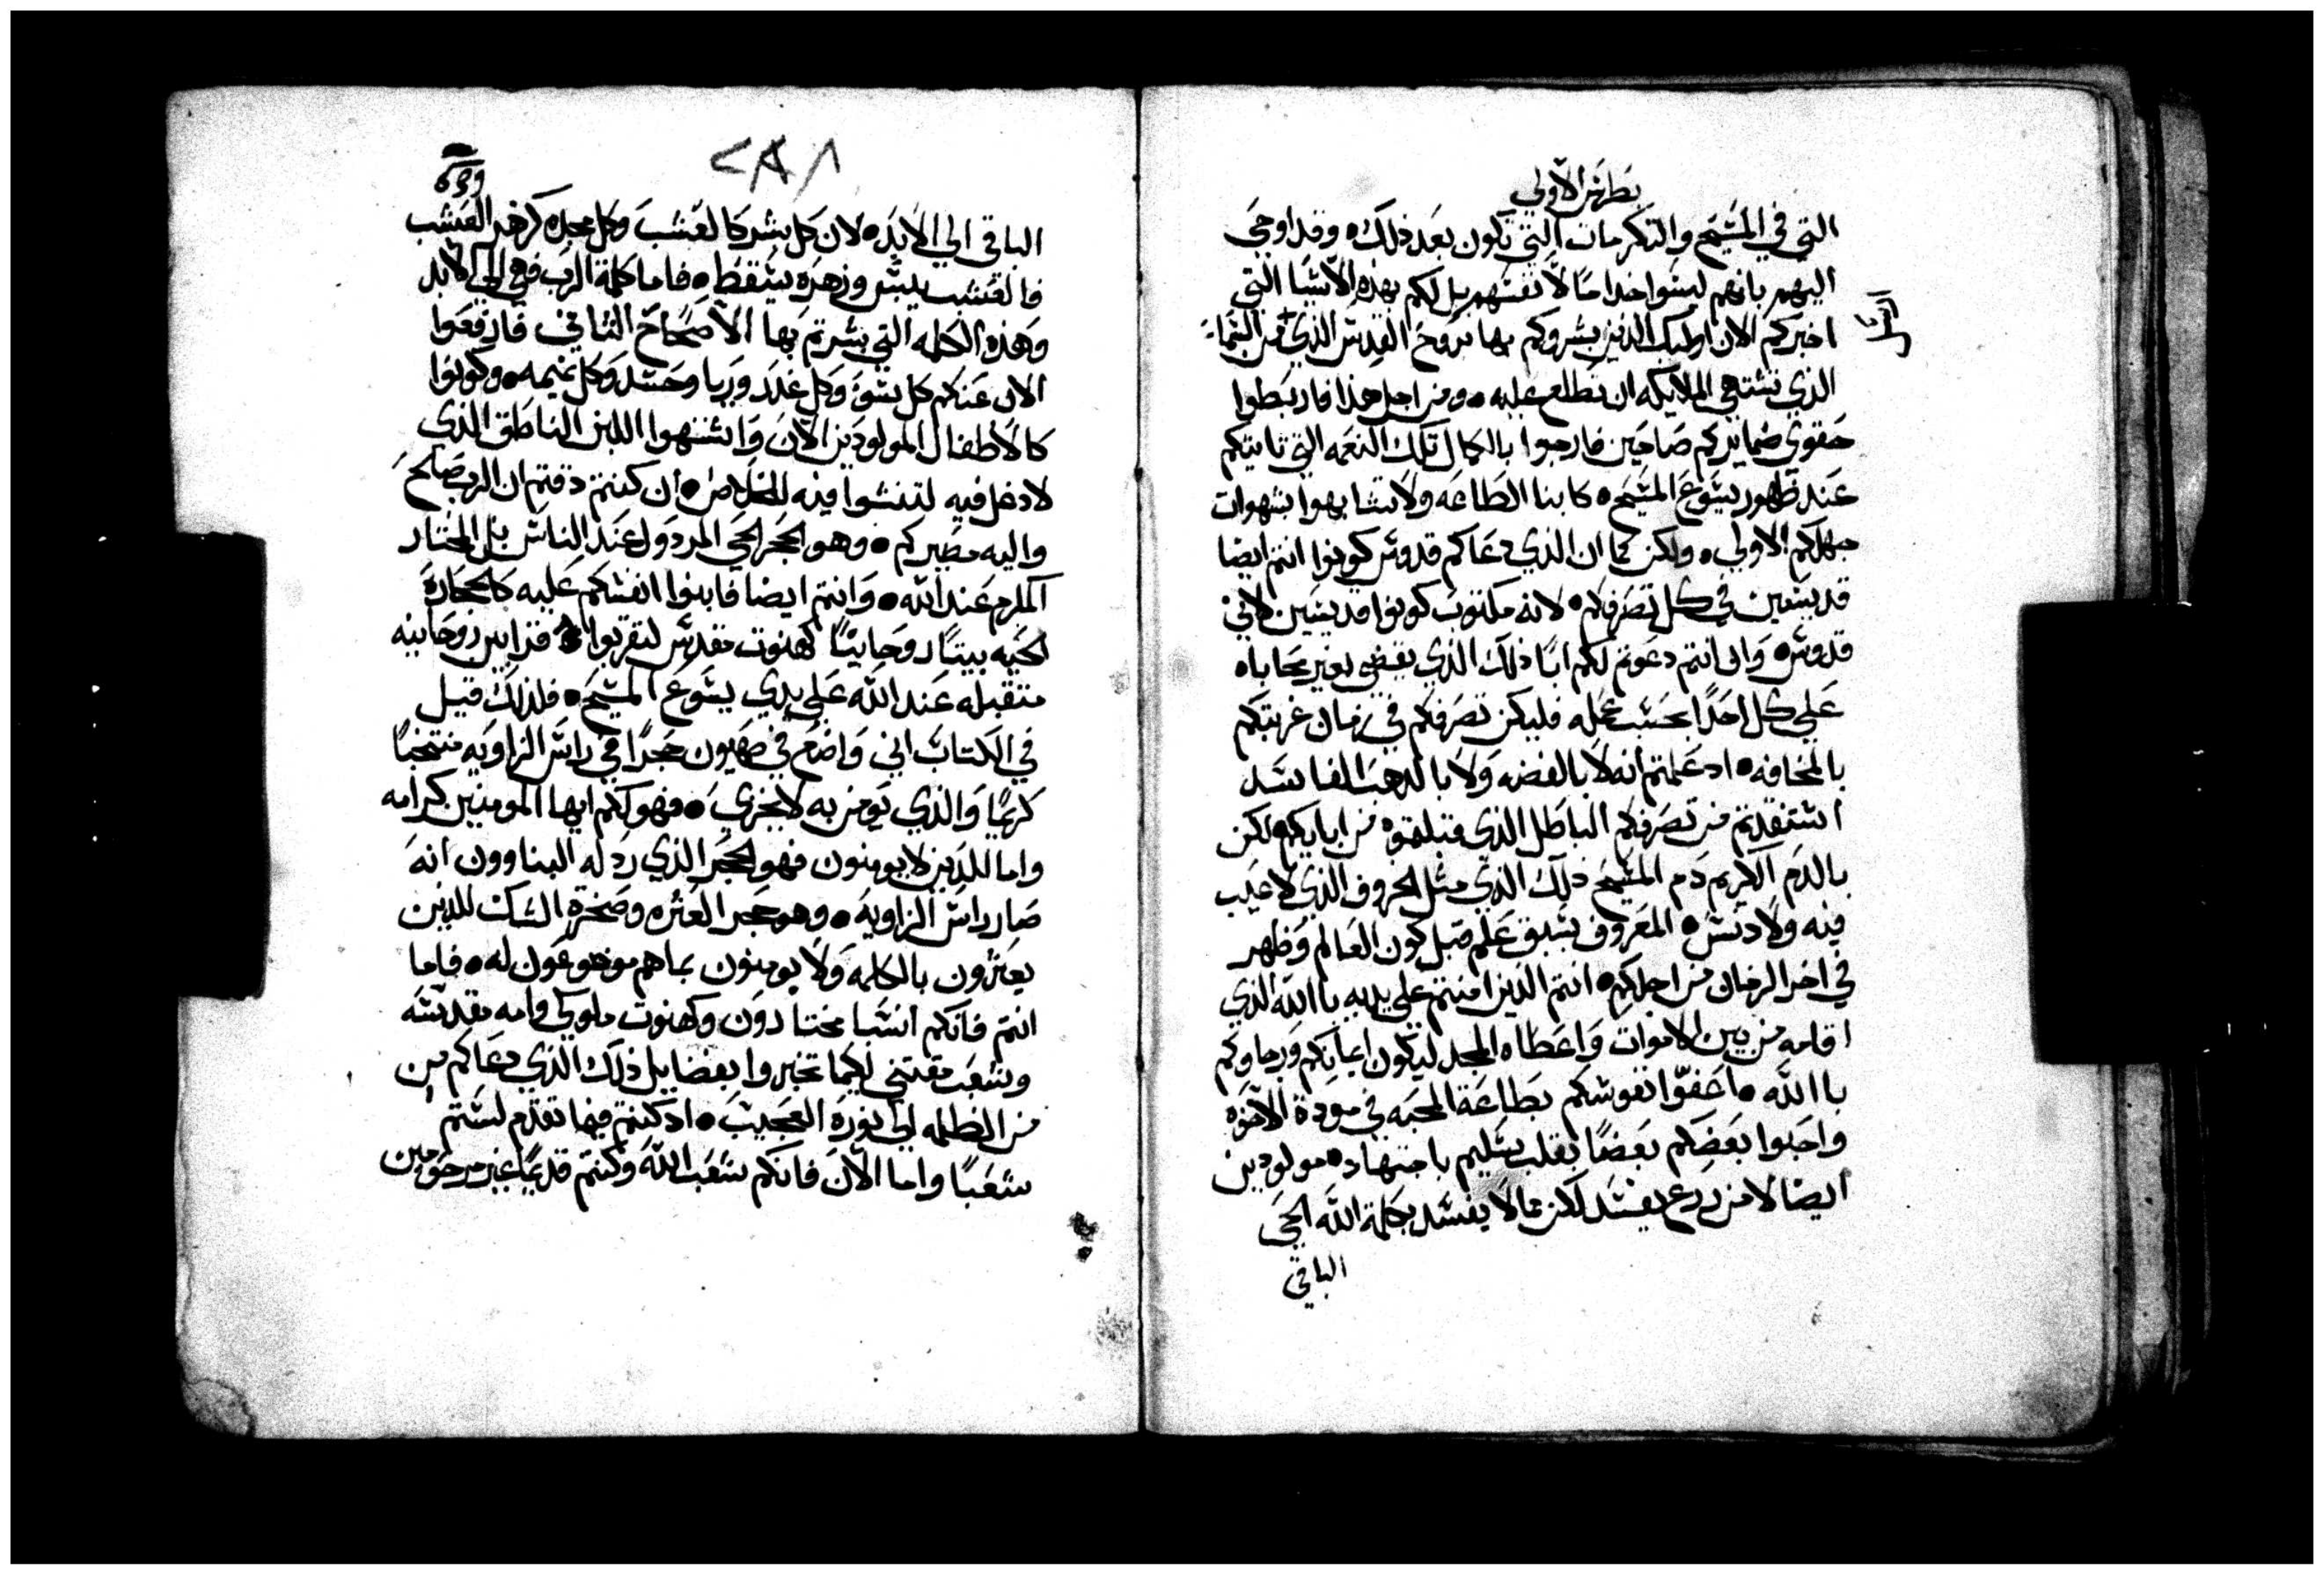 بطرس الاولي
التي في المسيح والتكرمات التي تكون بعد ذلك ه وقد اوحي
اليهم بانهم ليسوا خداما لانفسهم بل لكم بهذه الاشيا التي
اخبركم الان اوليك الذين بشروكم بها بروح القدس الذي من السماء
الذي تشتهي الملايكه ان تطلع عليه ه ومن اجل هذا فاربطوا
حقوي ضمايركم صاحين فارجوا بالكمال تلك النعمه التي تاتيكم
عند ظهور يسوع المسيح ه كابنا الطاعه ولا تتشابهوا بشهوات
جهلكم الاولي ه ولكن كما ان الذي دعاكم قدوس كونوا انتم ايضا
قديسين في كل تصرفكم ه لانه مكتوب كونوا قديسين لاني
قدوس ه وان انتم دعوتم لكم ابا ذلك الذي يقضي بغير محاباه
علي كل احدا بحسب عمله فليكن تصرفكم في زمان غربتكم
بالمخافه ه اد علمتم انه لا بالفضه ولا بالدهب الفاسد
استنقدتم من تصرفكم الباطل الذي قبلتوه من ابايكم لكن
بالدم الكريم دم المسيح ذلك الذي مثل الخروف الذي لا عيب
فيه ولا دنس ه المعروف بسبق علم قبل كون العالم وظهر
في اخر الزمان من اجلكم ه انتم الذين امنتم علي يديه باالله الذي
اقامه من بين الاموات واعطاه المجد ليكون ايمانكم ورجاوكم
باالله ه اعفوا نفوسكم بطاعة المحبه في مودة الاخوه
واحبوا بعضكم بعضا بقلب سليم باجتهاد ه مولودين
ايضا لا من زرع يفسد لكن مما لا يفسد بكلمة الله الحي
الباقي
٢٨٨
الباقي الي الابد ه لان كل بشر كالعشب وكل مجده كزهر العشب
فالعشب ييبس وزهره يسقط ه فاما كلمة الرب فهي الي الابد
وهذه الكلمه التي بشرتم بها الاصحاح الثاني فارفعوا
الان عنكم كل سو وكل غدر وريا وحسد وكل نميمه ه وكونوا
كالاطفال المولودين الان واشتهوا اللبن الناطق الذي
لا دغل فيه لتنشوا فيه للخلاص ه ان كنتم دقتم ان الرب صالح
واليه مصيركم ه وهو الحجر الحي المردول عند الناس بل المختار
المكرم عند الله ه وانتم ايضا فابنوا انفسكم عليه كالحجارة
الحيه بيتا روحانيا كهنوت مقدس لتقربوا قرابين روحانيه
متقبله عند الله علي يدي يسوع المسيح ه فلذلك قيل
في الكتاب اني واضع في صهيون حجرا في راس الزاويه منتخبا
كريما والذي يومن به لا يخزي ه فهو لكم ايها المومنين كرامه
واما للذين لا يومنون فهو الحجر الذي ردله البناوون انه
صار راس الزاويه ه وهو حجر العثره وصخرة الشك للذين
يعثرون بالكلمه ولا يومنون بما هم موضوعون له ه فاما
انتم فانكم انسبا مختارون وكهنوت ملوكي وامه مقدسه
وشعب مقتني لكيما تخبروا بفضايل ذلك الذي دعاكم من
من الظلمه الي نوره العجيب ه اد كنتم فيما تقدم لستم
شعبا واما الان فانكم شعب الله وكنتم قديما غير مرحومين